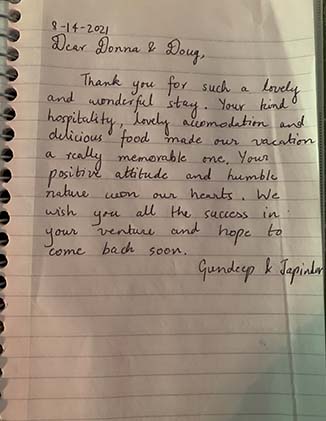 8-14-2021
Dear Donna & Doug,
Thank you for such a lovely
and wonderful stay. Your kind
hospitality, lovely accomodation and
delicious food made our vacation
a really memorable one. Your
positive attitude and humble
nature won our hearts. We
wish you all the success in
your venture and hope to
come back soon.
Gundeep & Japinder